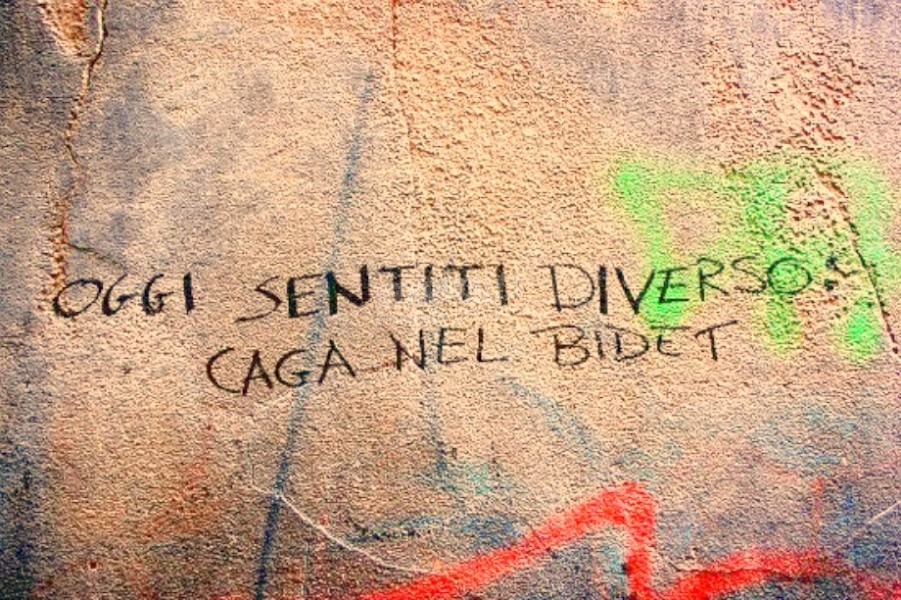 OGGI SENTITI DIVERSO:
CAGA NEL BIDET